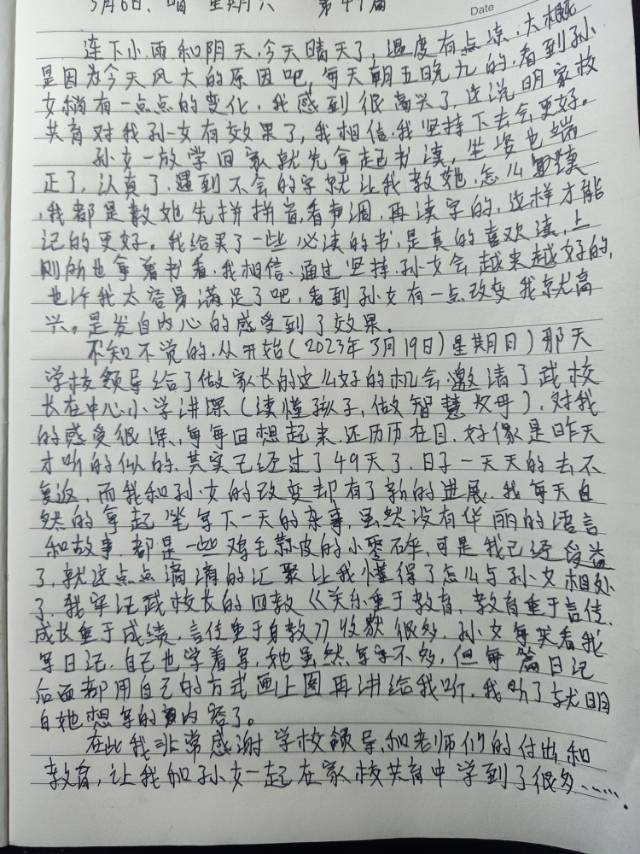 5月6日、晴 星期六 第49届
Date
连下小雨和阴天、今天晴天了，温度有点凉、大概
是因为今天风大的原因吧，每天朝五晚九的，看到孙
女稍有一点点的变化，我感到很高兴了，这说明家校
共育对我孙女有效果了，我相信我坚持下去会更好。
孙女一放学回家就先拿起书读，坐姿也端
正了，认真了，遇到不会的字就让我教她，怎么
，我都是教她先拼拼音，看声调，再读字的，这样才能
记的更好。我给买了一些必读的书，是真的喜欢读，上
厕所也拿着书看，我相信，通过坚持，孙女会越来越好的，
也许我太容易满足了吧，看到孙女有一点改变我就高
兴。是发自内心的感受到了效果。
不知不觉的，从开始（2023年3月19日）星期日）那天
学校领导给了做家长的这么好的机会邀请了武校
长在中心小学讲课（读懂孩子，做智慧父母），对我
的感受很深，每每回想起来还历历在目，好像是昨天
才听的似的，其实已经过了49天了，日子一天天的去不
复返，而我和孙女的改变却有了新的进展，我每天自
然的拿起笔写下一天的杂事，虽然没有华丽的语言
和故事，都是一些鸡毛蒜皮的小零碎，可是我已经受益
了，就这点点滴滴的汇聚让我懂得了怎么与孙女相处
了，我牢记武校长的四教《关系重于教育，教育重于言传，
成长重于成绩，言传重于身教》收获很多，孙女每天看我
写日记，自己也学着写，她虽然写字不多，但每篇日记
后面都用自己的方式画上图再讲给我听，我听了就明
白她想写的内容了。
在此我非常感谢学校领导和老师们的付出和
教育，让我和孙女一起在家校共育中学到了很多……